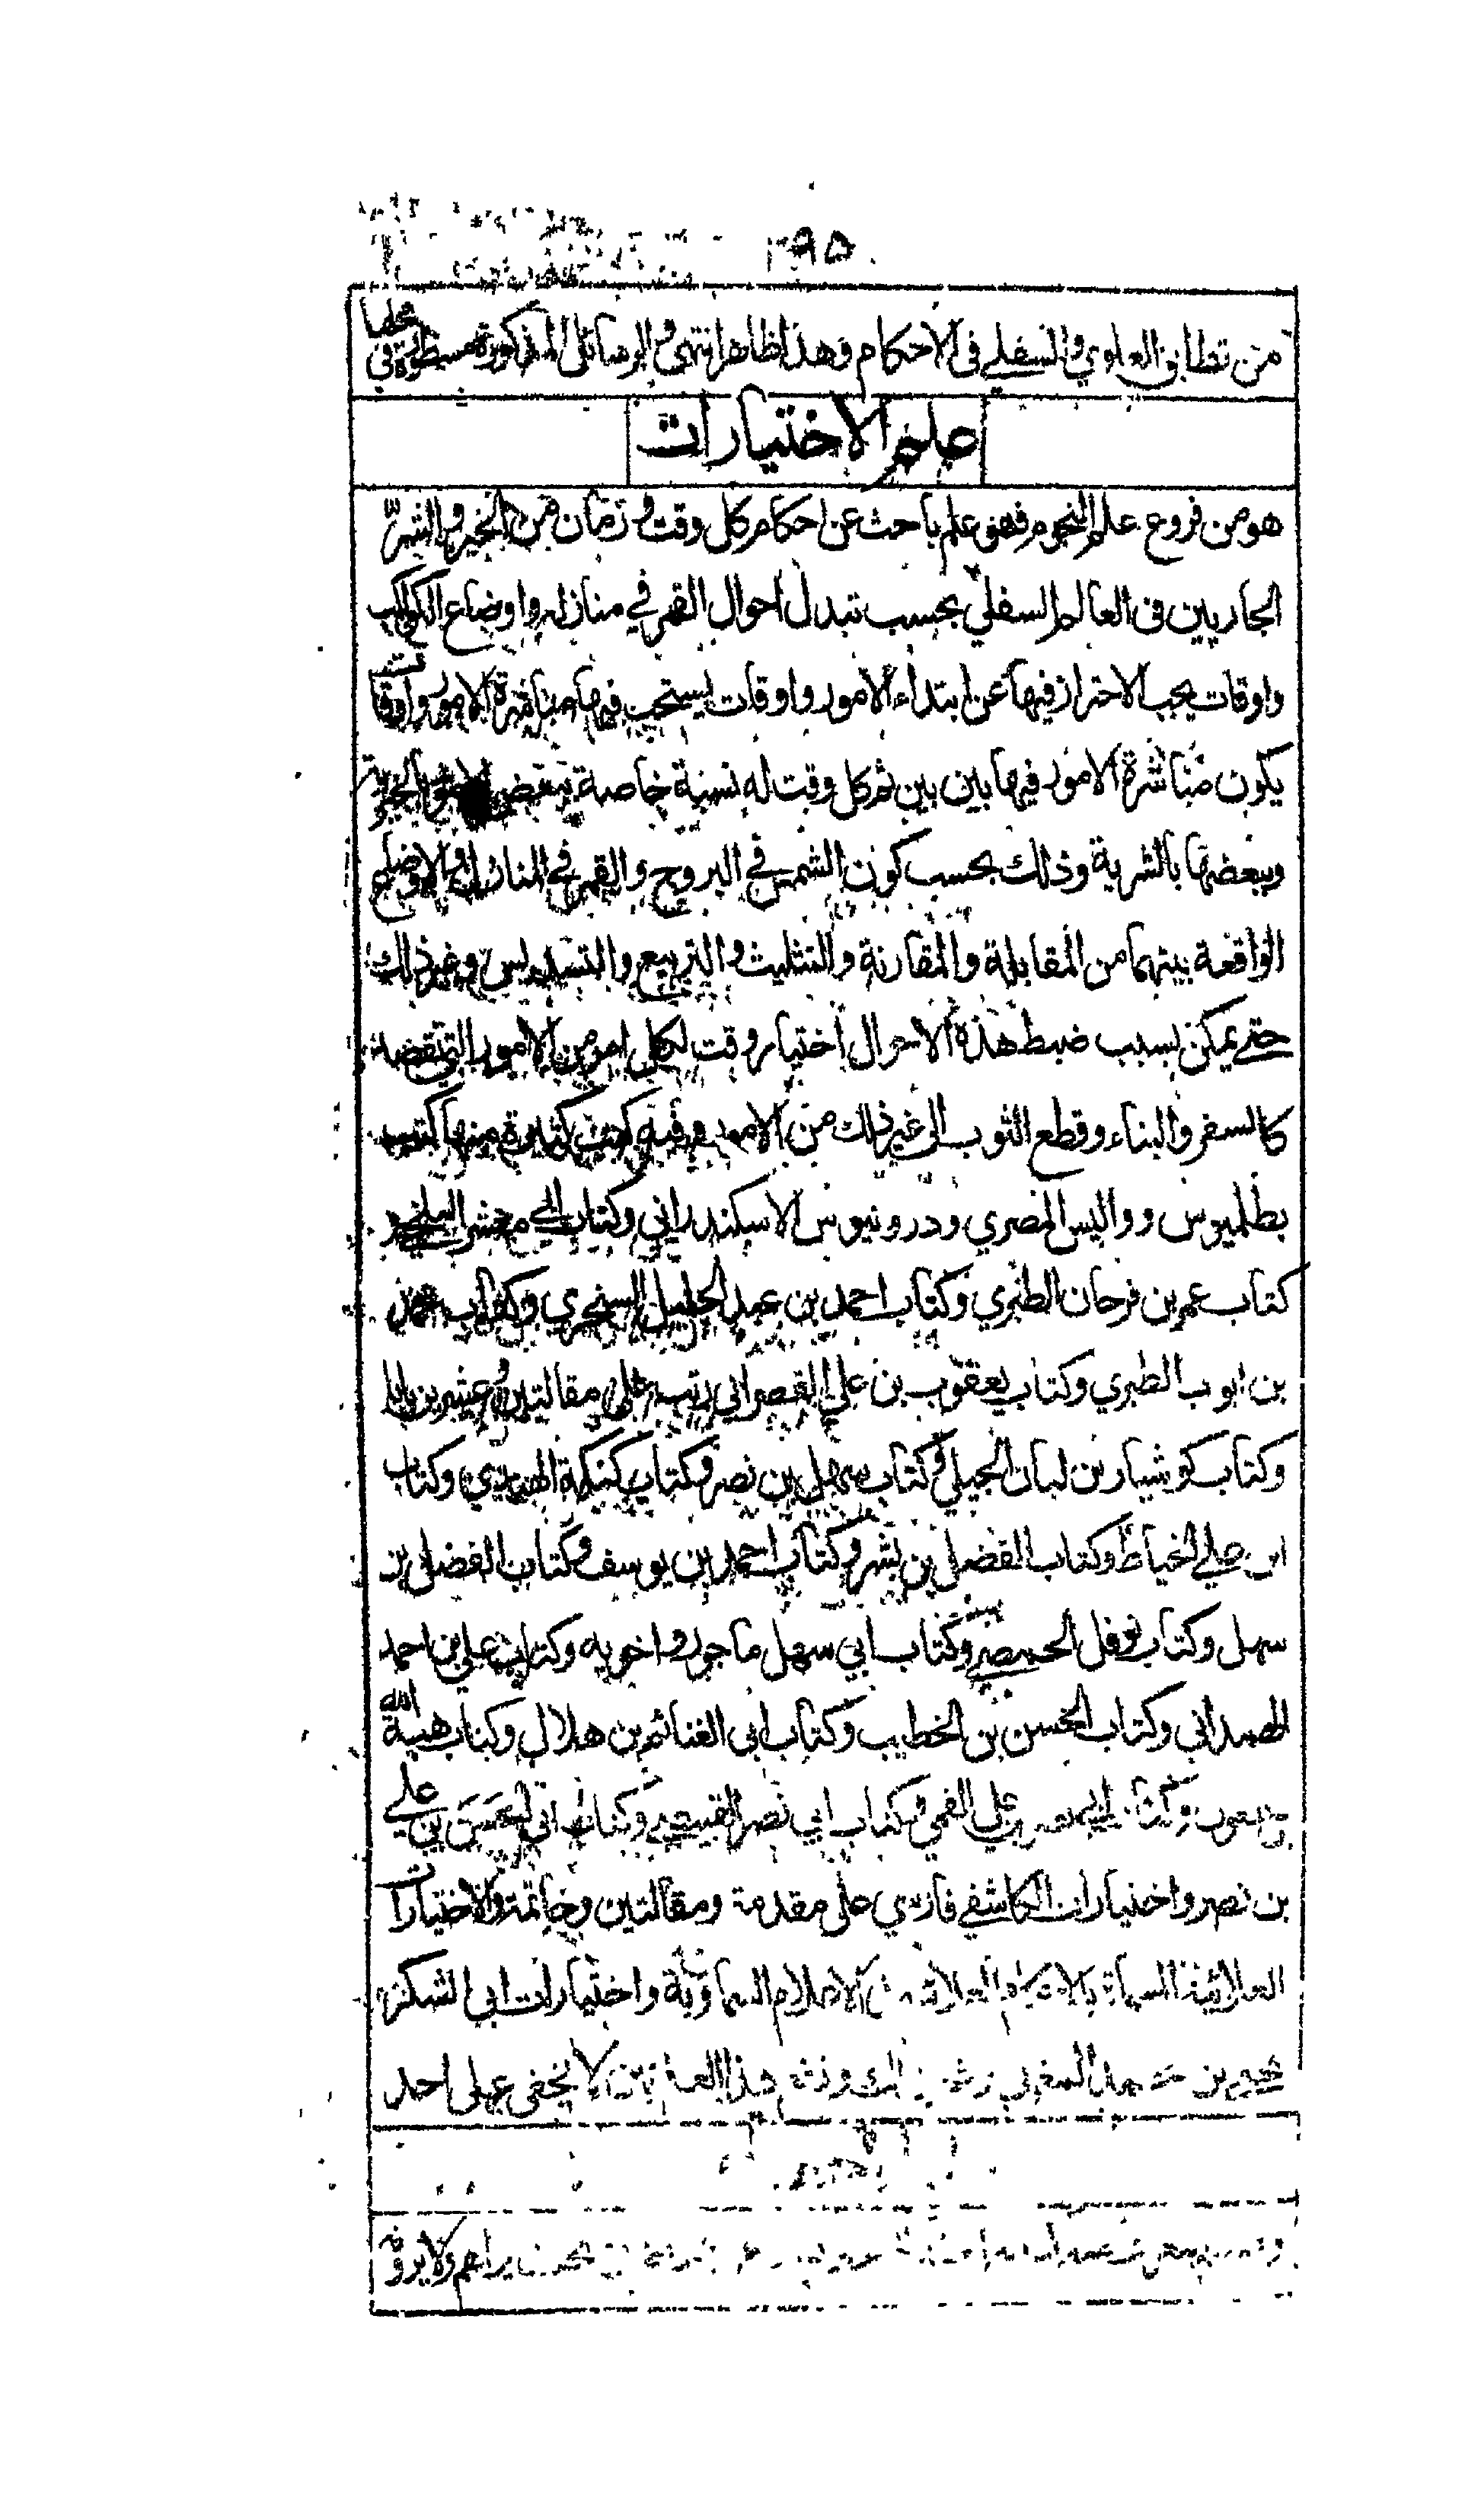 ٢٩٥
من تطابق العلوي والسفلي في الاحكام وهذا ظاهر انتهى والرسائل المذكورة مسطورة في محلها
علم الاختيارات
هو من فروع علم النجوم فهو علم باحث عن احكام كل وقت و زمان من الخير والشر
الجاريين في العالم السفلي بحسب تبدل احوال القمر في منازله واوضاع الكواكب
واوقات يجب الاحتراز فيها عن ابتداء الامور واوقات يستحب فيها مباشرة الامور واوقات
يكون مباشرة الامور فيها بين بين ثم كل وقت له نسبة خاصة ببعض الامور بالخيرية
وببعضها بالشرية وذلك بحسب كون الشمس في البروج والقمر في المنازل والاوضاع
الواقعة بينهما من المقابلة والمقارنة والتثليث والتربيع والتسديس وغير ذلك
حتى يمكن بسبب ضبط هذه الاحوال اختيار وقت لكل امر من الامور التي تقصد
كالسفر والبناء وقطع الثوب الى غير ذلك من الامور وفيه كتب كثيرة منها كتب
بطلميوس وواليس المصري ودرونيوس الاسكندراني وكتاب ابي معشر البلخي و
كتاب عمر بن فرحان الطبري وكتاب احمد بن عبد الجليل السنجري وكتاب محمد
بن ايوب الطبري وكتاب يعقوب بن علي القصراني رتبه على مقالتين وعشرين بابا
وكتاب كوشيار بن لبان الجيلي وكتاب سهل بن نصر وكتاب كنكه الهندي وكتاب
ابن علي الخياط وكتاب الفضل بن بشر وكتاب احمد بن يوسف وكتاب الفضل بن
سهل وكتاب نوفل الحمصي وكتاب ابي سهل ماجور واخويه وكتاب علي بن احمد
الهمداني وكتاب الحسن بن الخطيب وكتاب ابي الغنائم بن هلال وكتاب هبة الله
بن شمعون وكتاب ابي نصر بن علي القمي وكتاب ابي نصر القبيصي وكتاب ابي الحسن بن علي
بن نصر واختيارات الكاشفي فارسي على مقدمة ومقالتين وخاتمة والاختيارات
العلائية المسماة بالاحكام العلائية في الاعلام السماوية واختيارات ابي الشكر
يحيى بن محمد المغربي هذا العلم لا يخفى على احد